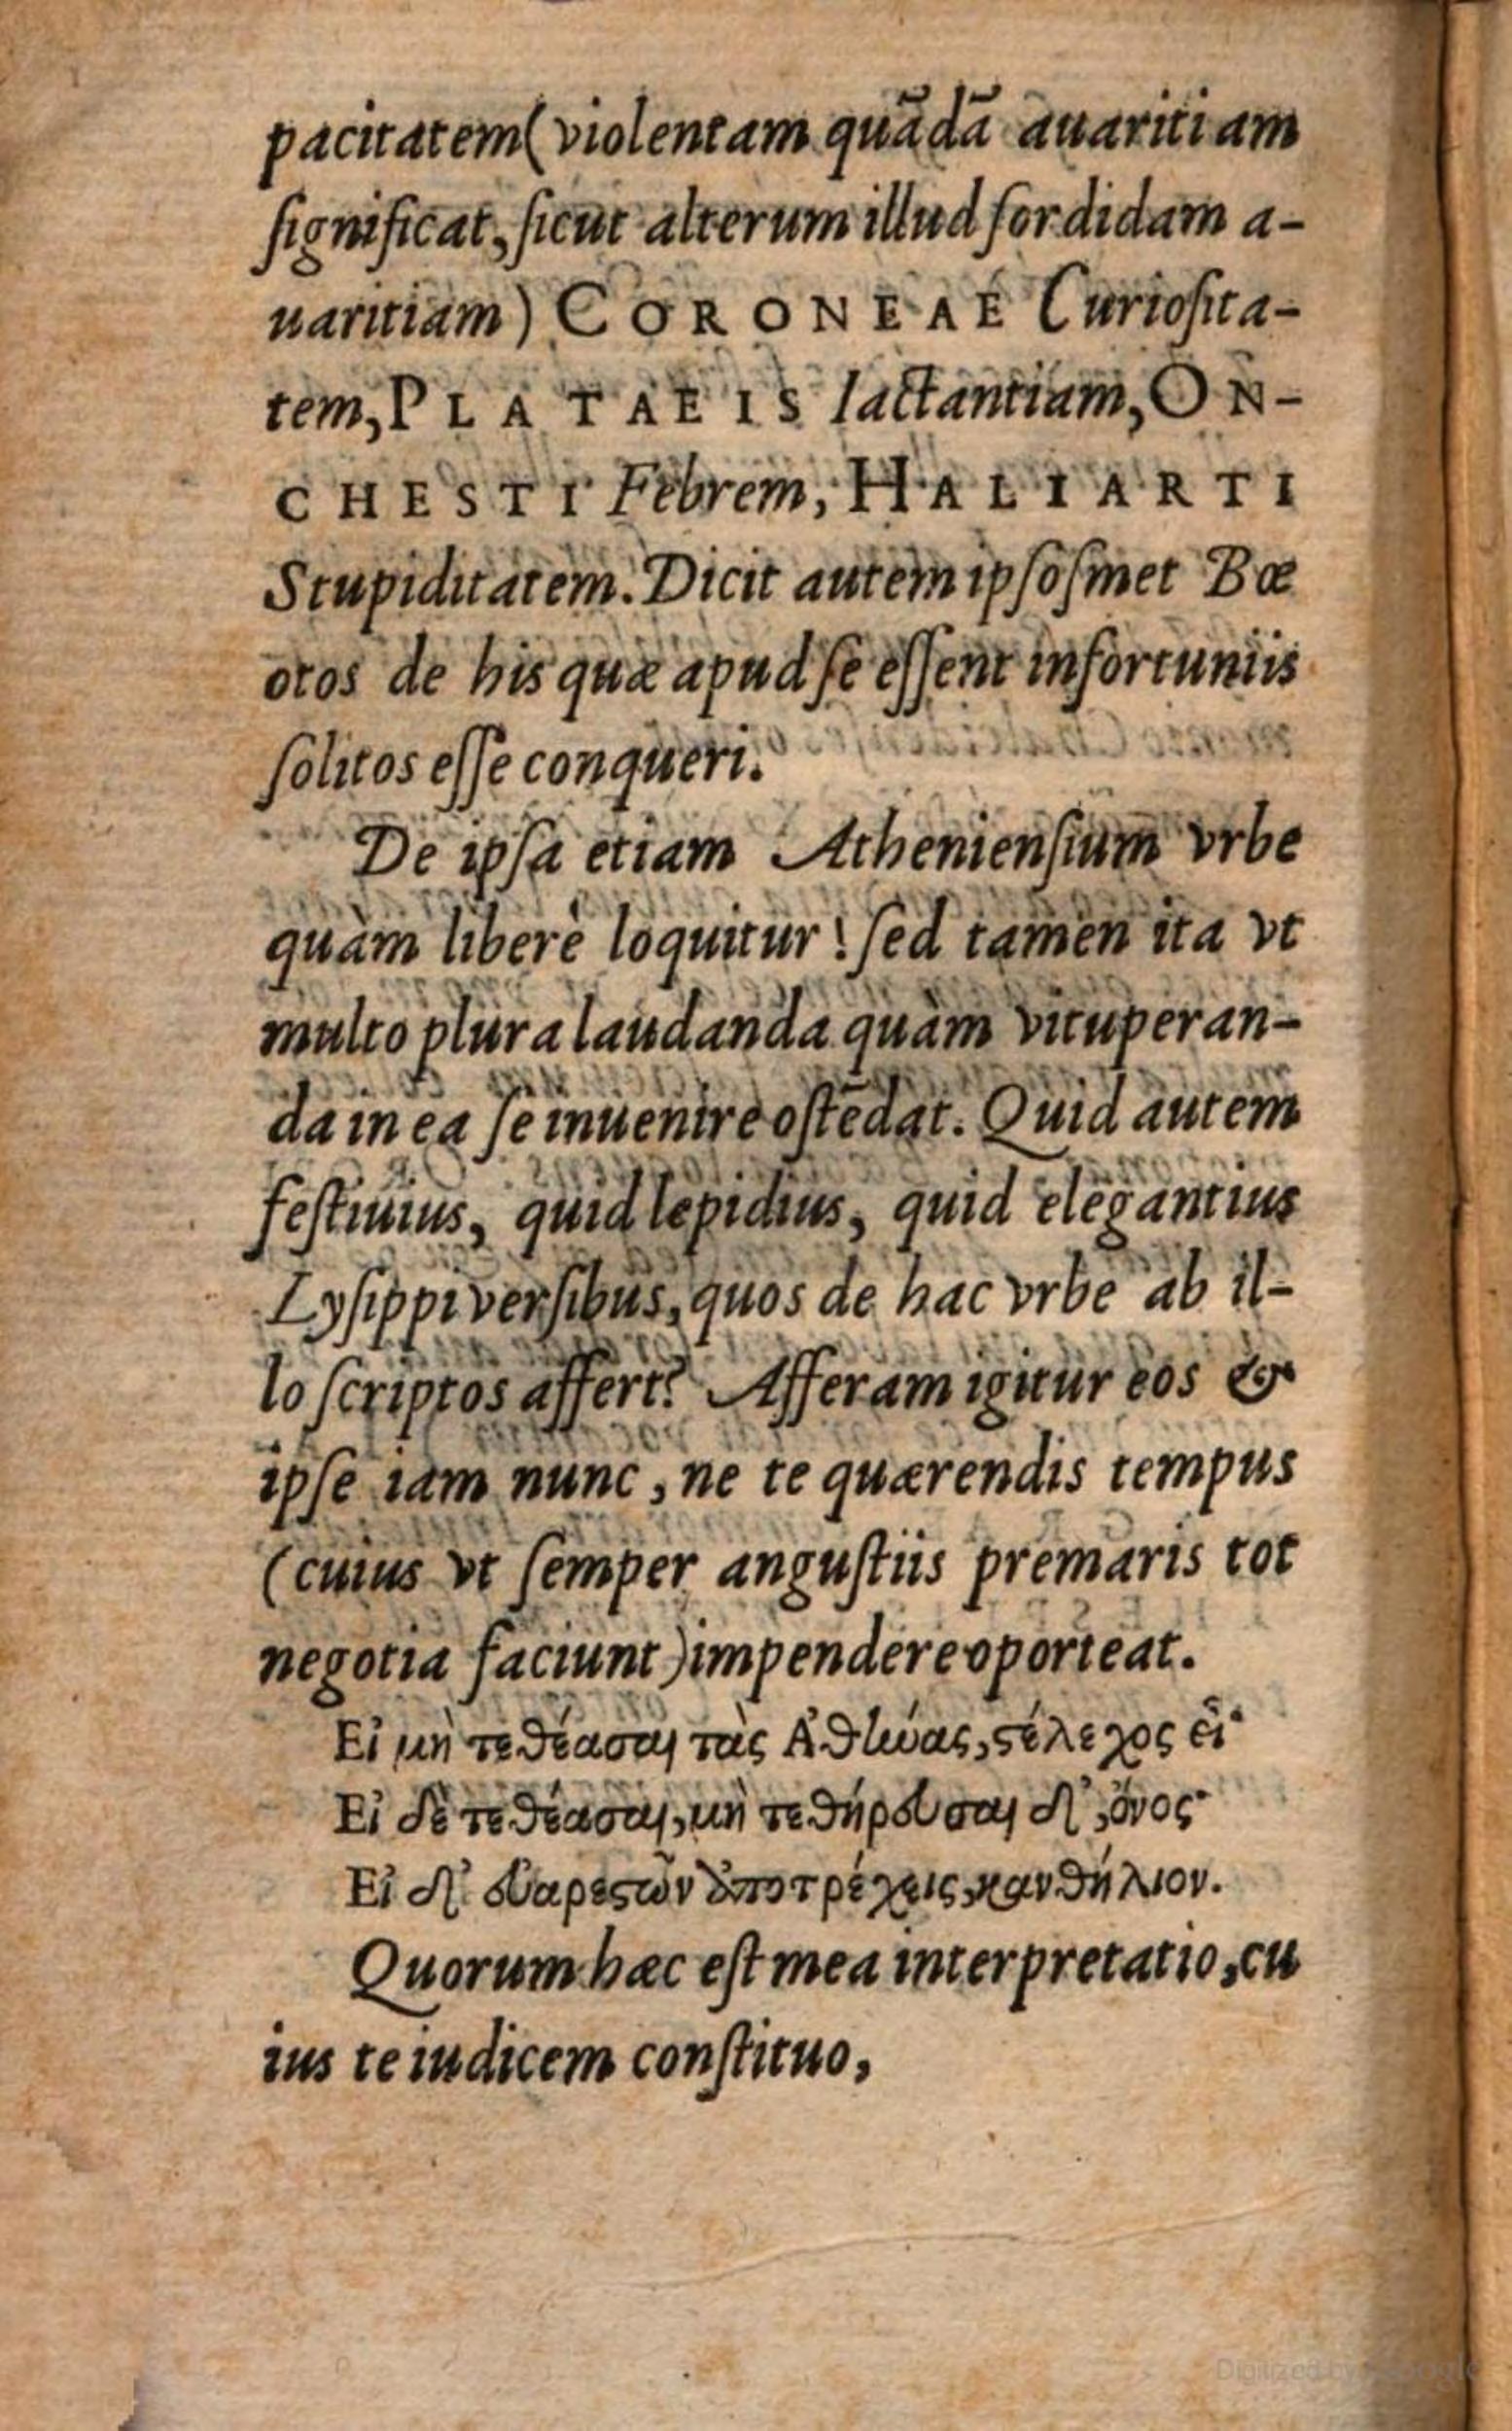 pacitatem(violentam quādā auaritiam
ſignificat, ſicut alterum illud ſordidam a-
uaritiam) CORONEAE Curioſita-
tem, PLATAEIS Iactantiam, ON-
CHESTI Febrem, HALIARTI
Stupiditatem. Dicit autem ipſoſmet Bœ
otos de his quæ apud ſe eſſent infortuniis
ſolitos eſſe conqueri.
De ipſa etiam Athenienſium vrbe
quàm liberè loquitur! ſed tamen ita vt
multo plura laudanda quàm vituperan-
da in ea ſe inuenire oſtēdat. Quid autem
feſtiuius, quid lepidius, quid elegantius
Lyſippi verſibus, quos de hac vrbe ab il-
lo ſcriptos affert? Afferam igitur eos &
ipſe iam nunc, ne te quærendis tempus
(cuius vt ſemper anguſtiis premaris tot
negotia faciunt) impendere oporteat.
Εἰ μὴ τεθέασαι τὰς Ἀθήνας, στέλεχος εἶ·
Εἰ δὲ τεθέασαι, μὴ τεθήρευσαι δ', ὄνος·
Εἰ δ' εὐαρεστῶν ἀποτρέχεις, κανθήλιον.
Quorum hæc eſt mea interpretatio, cu
ius te iudicem conſtituo,
Digitized by Google